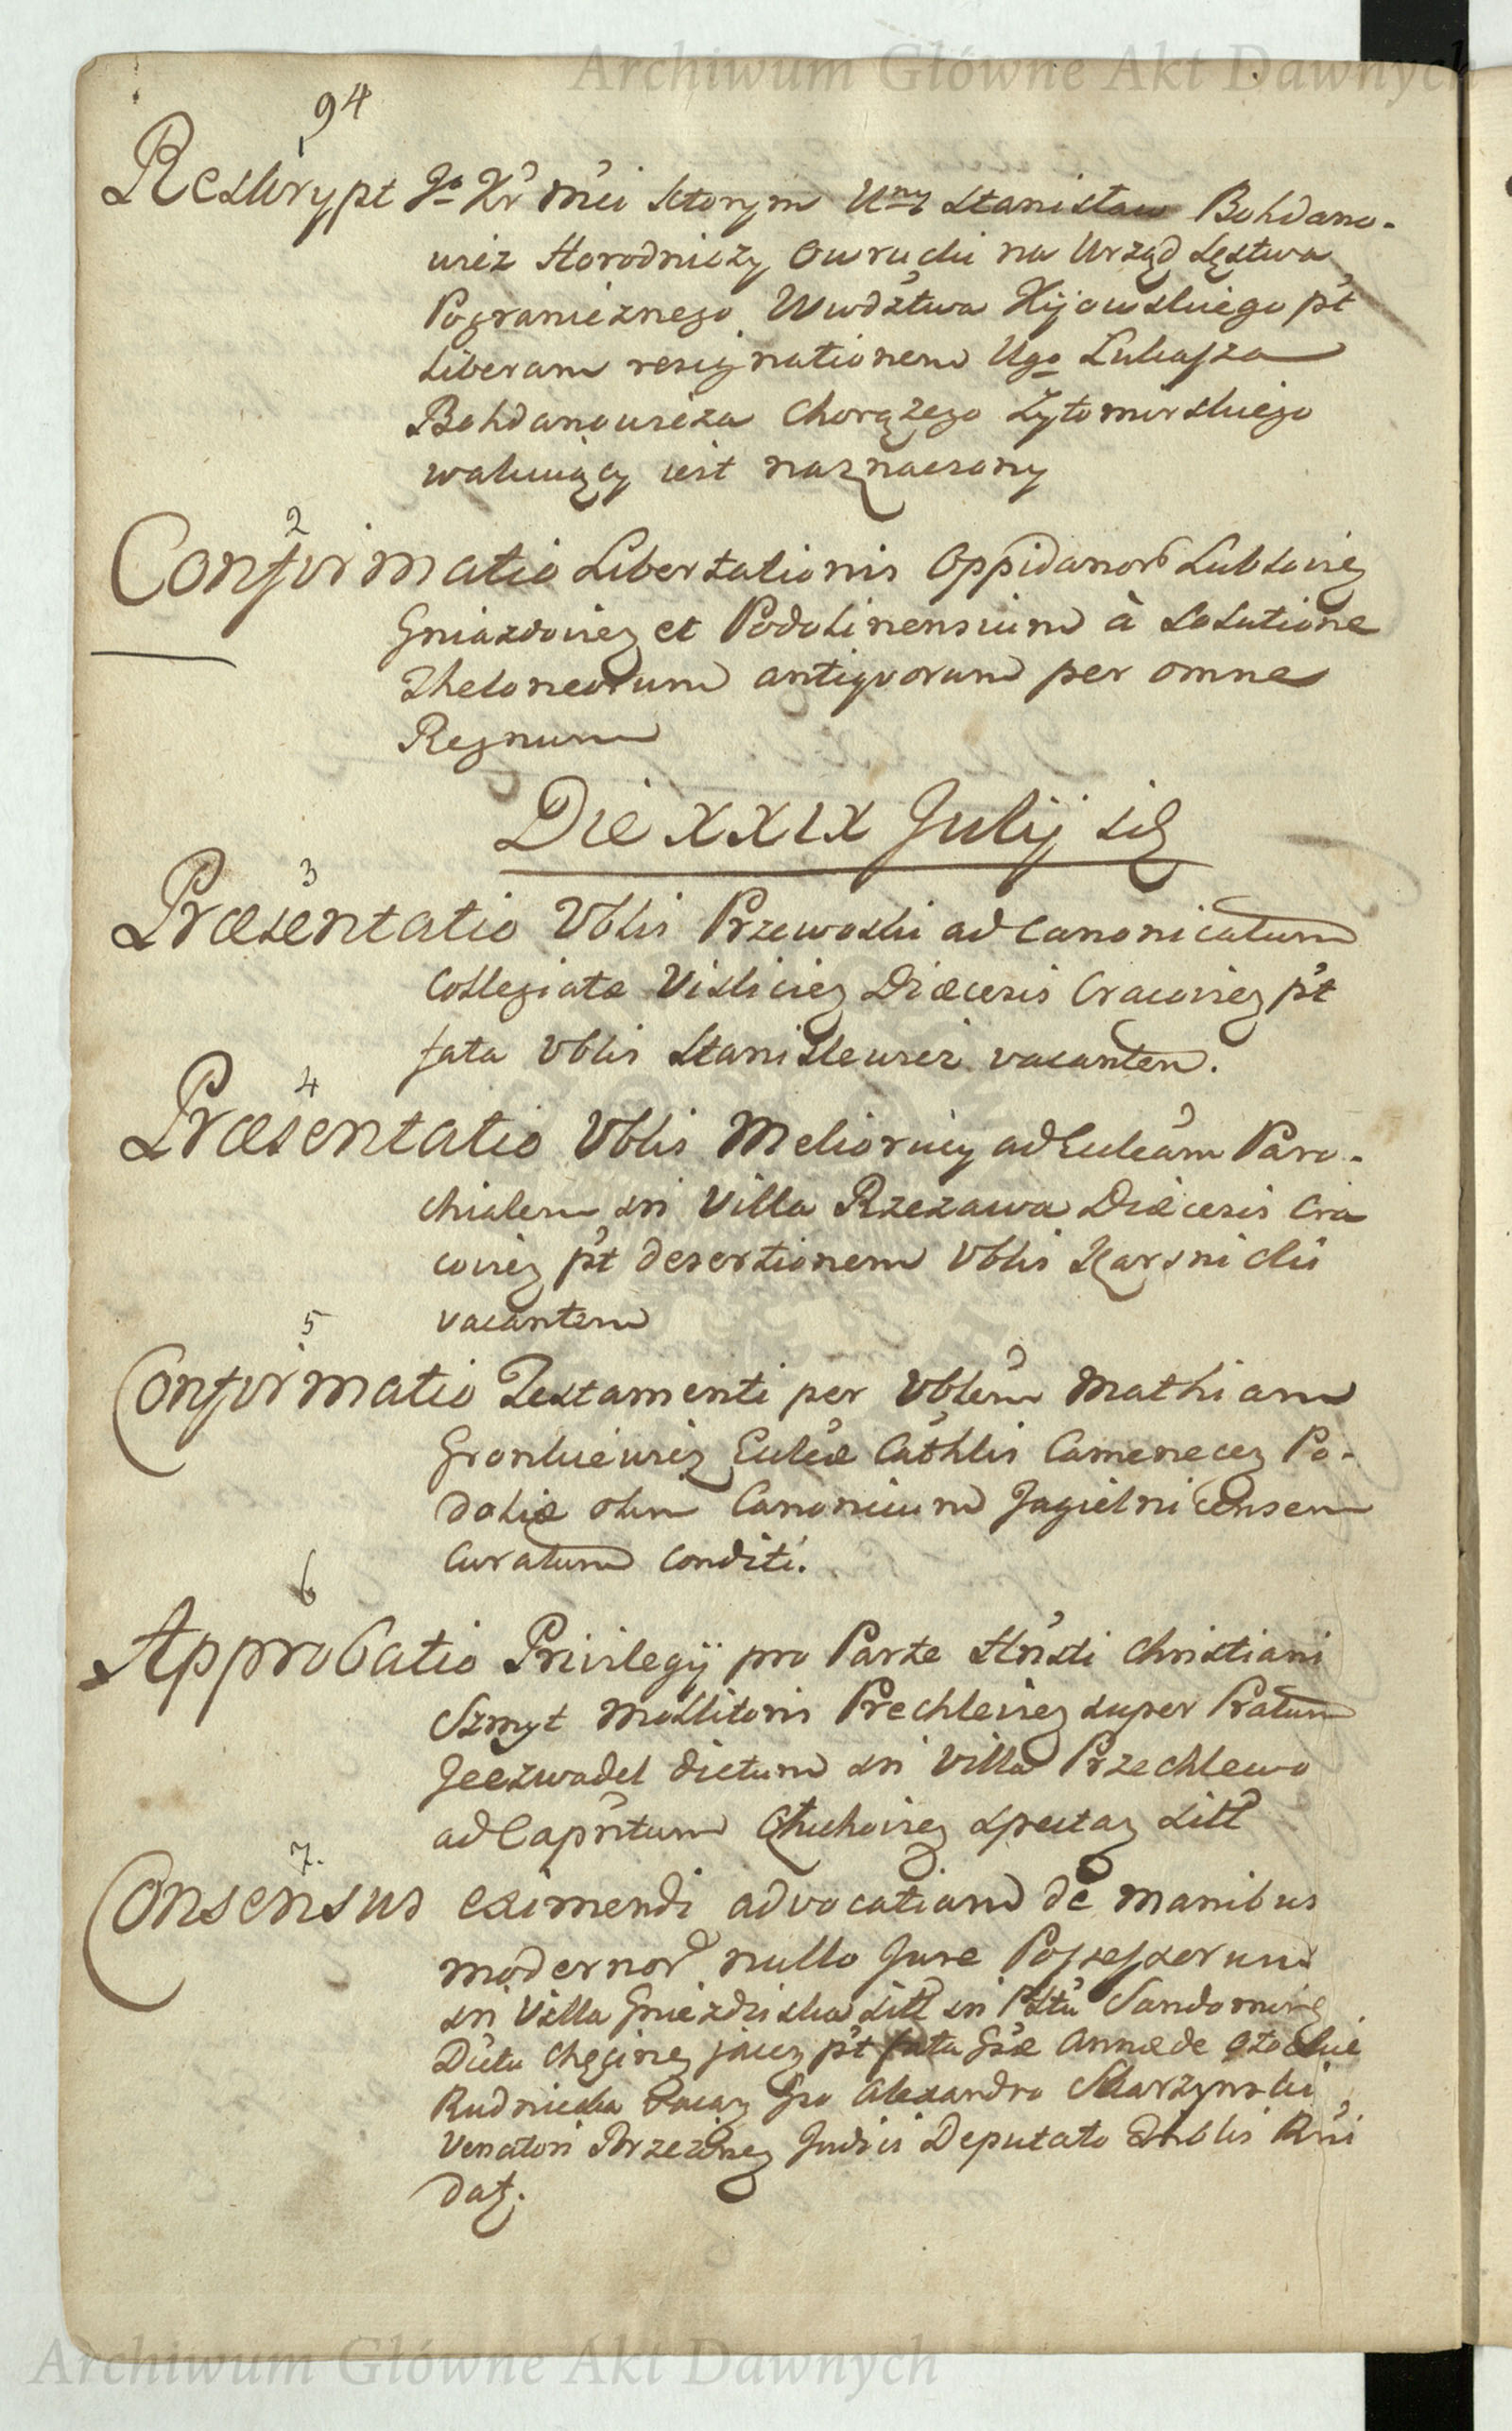 Archiwum Główne Akt Dawnych
94
1
Reskrypt Jo Kr Mci ktorym Uny Stanisław Bohdano-
wicz Horodniczy Owrucki na Urząd Sęstwa
Pogranicznego Wwdztwa Kijowskiego pt
liberam resignationem Ugo Łukasza
Bohdanowicza Chorązego Zytomirskiego
wakuiący iest naznaczony
2
Confirmatio Libertationis Oppidanor Lublovien
Gniazdovien et Podolinensium à solutione
Theloneorum antiquorum per omne
Regnum
Die XXIX Julij
3
Præsentatio Vblis Przewoski ad Canonicatum
Collegiatæ Vislicien Diæcesis Cracovien pt
fata Vblis Stanislewicz vacantem.
4
Præsentatio Vblis Meliorini ad Eccleam Paro-
chialem in Villa Rzezawa Diæcesis Cra
covien pt desertionem Vblis Karsnicki
vacantem
5
Confirmatio Testamenti per Vblem Mathiam
Eccleæ Cathlis Camenecen Po-
doliæ olim Canonicum Jagielnicensem
Curatum conditi.
6
Approbatio Privilegij pro Parte Christiani
Szmyt Mollitoris Prechlevien super Pratum
Jeezwadel dictum in Villa Przechlewo
ad Capntum spectan Sitt
7.
Consensus eximendi advocatiam de manibus
modernor nullo Jure Possessorum
in Villa Gniezdziska Sitt in Plttu Sandomirien
Dictu Chęcinen jacen pt fata Gsæ Annæ de
Rudnicka vacan Gso Alexandro Skarzynski
Venatori Brzezinen Judici Deputato
dat.
Archiwum Główne Akt Dawnych